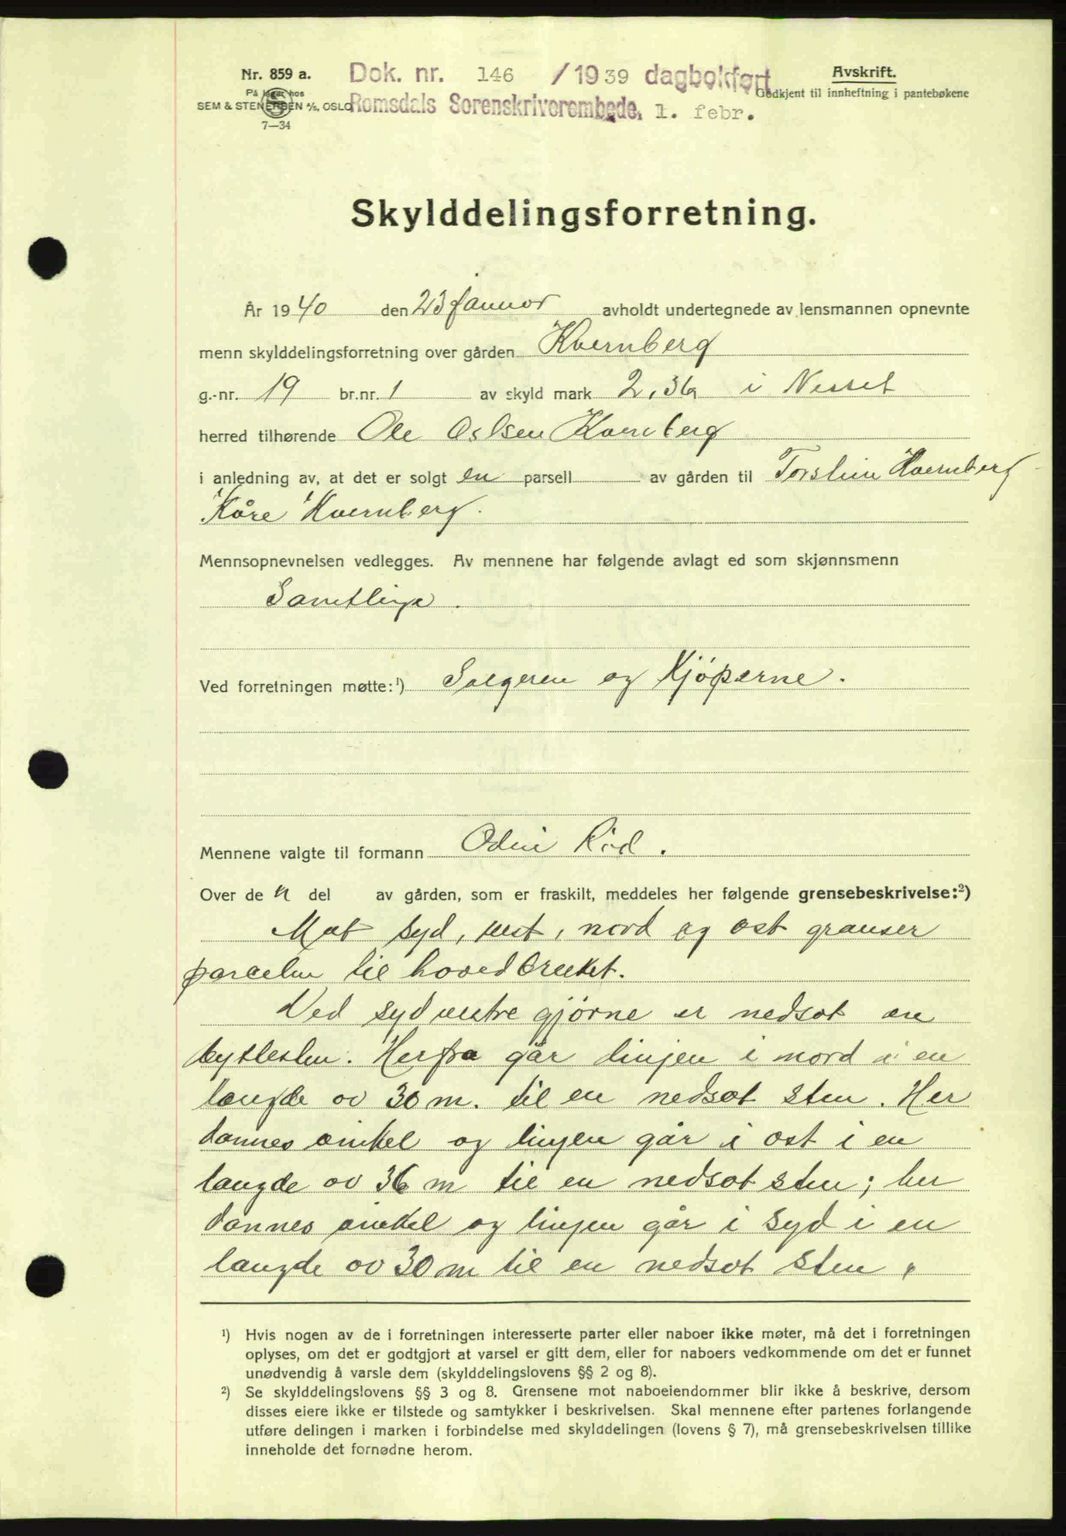 Nr. 859 a.
På lager hos
SEM & STENERSEN A/S, OSLO
7—34
Dok. nr. 146 /1939 dagbokført
Romsdals Sorenskriverembede, 1. febr.
Avskrift.
Godkjent til innheftning i pantebøkene
Skylddelingsforretning.
År 1940 den 23 januar avholdt undertegnede av lensmannen opnevnte
menn skylddelingsforretning over gården Kvernberg
g.-nr. 19 br.nr. 1 av skyld mark 2,36 i Nesset
herred tilhørende Ole Kvernberg
i anledning av, at det er solgt en parsell av gården til Torstein Kvernberg
Kåre Kvernberg.
Mennsopnevnelsen vedlegges. Av mennene har følgende avlagt ed som skjønnsmenn
Samtlige.
Ved forretningen møtte:¹) Selgeren og Kjøperne.
Mennene valgte til formann Odin Rød.
Over de n del av gården, som er fraskilt, meddeles her følgende grensebeskrivelse:²)
Mot syd, vest, nord og ost granser
parcelen til hovedbruket.
Ved sydvestre hjørne er nedsat en
bytlesten. Herfra går linjen i nord i en
langde av 30 m. til en nedsat sten. Her
dannes vinkel og linjen går i ost i en
langde av 36 m til en nedsat sten; her
dannes vinkel og linjen går i syd i en
langde av 30 m til en nedsat sten,
¹) Hvis nogen av de i forretningen interesserte parter eller naboer ikke møter, må det i forretningen
oplyses, om det er godtgjort at varsel er gitt dem, eller for naboers vedkommende om det er funnet
unødvendig å varsle dem (skylddelingslovens §§ 2 og 8).
²) Se skylddelingslovens §§ 3 og 8. Grensene mot naboeiendommer blir ikke å beskrive, dersom
disses eiere ikke er tilstede og samtykker i beskrivelsen. Skal mennene efter partenes forlangende
utføre delingen i marken i forbindelse med skylddelingen (lovens § 7), må grensebeskrivelsen tillike
inneholde det fornødne herom.